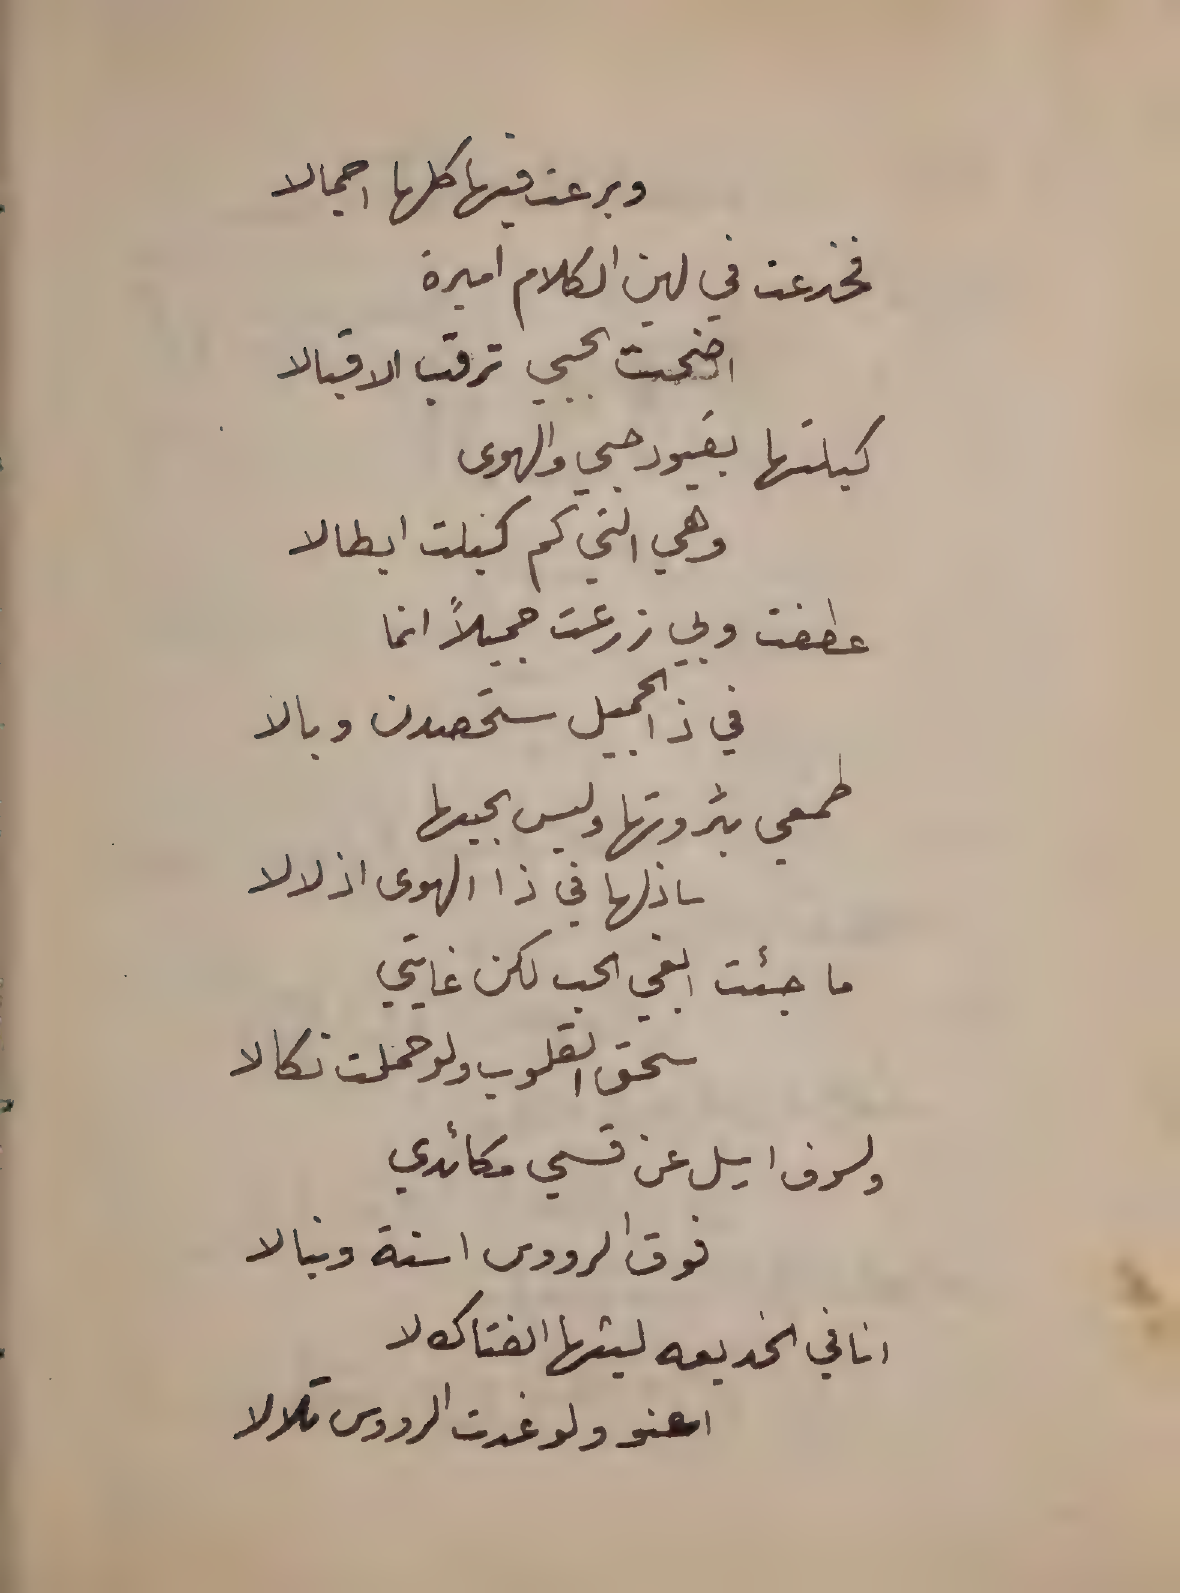 وبرعت فيها كلها اجمالا
فخدعت في لين الكلام اميرة
اضحت بحبي ترقب الاقبالا
كبلتها بقيود حبي والهوى
وهي التي كم كبلت ابطالا
عطفت وبي زرعت جميلاً انما
في ذا الجميل ستحصدن وبالا
طمعي بثروتها وليس بحبها
ساذلها في ذا الهوى اذلالا
ما جئت ابغي الحب لكن غايتي
سحق القلوب ولو حملت نكالا
ولسوف اسل عن قسي مكائدي
فوق الرووس اسنة ونبالا
انا في الخديعه ليثها الفتاك لا
اعنو ولو غدت الرووس تلالا